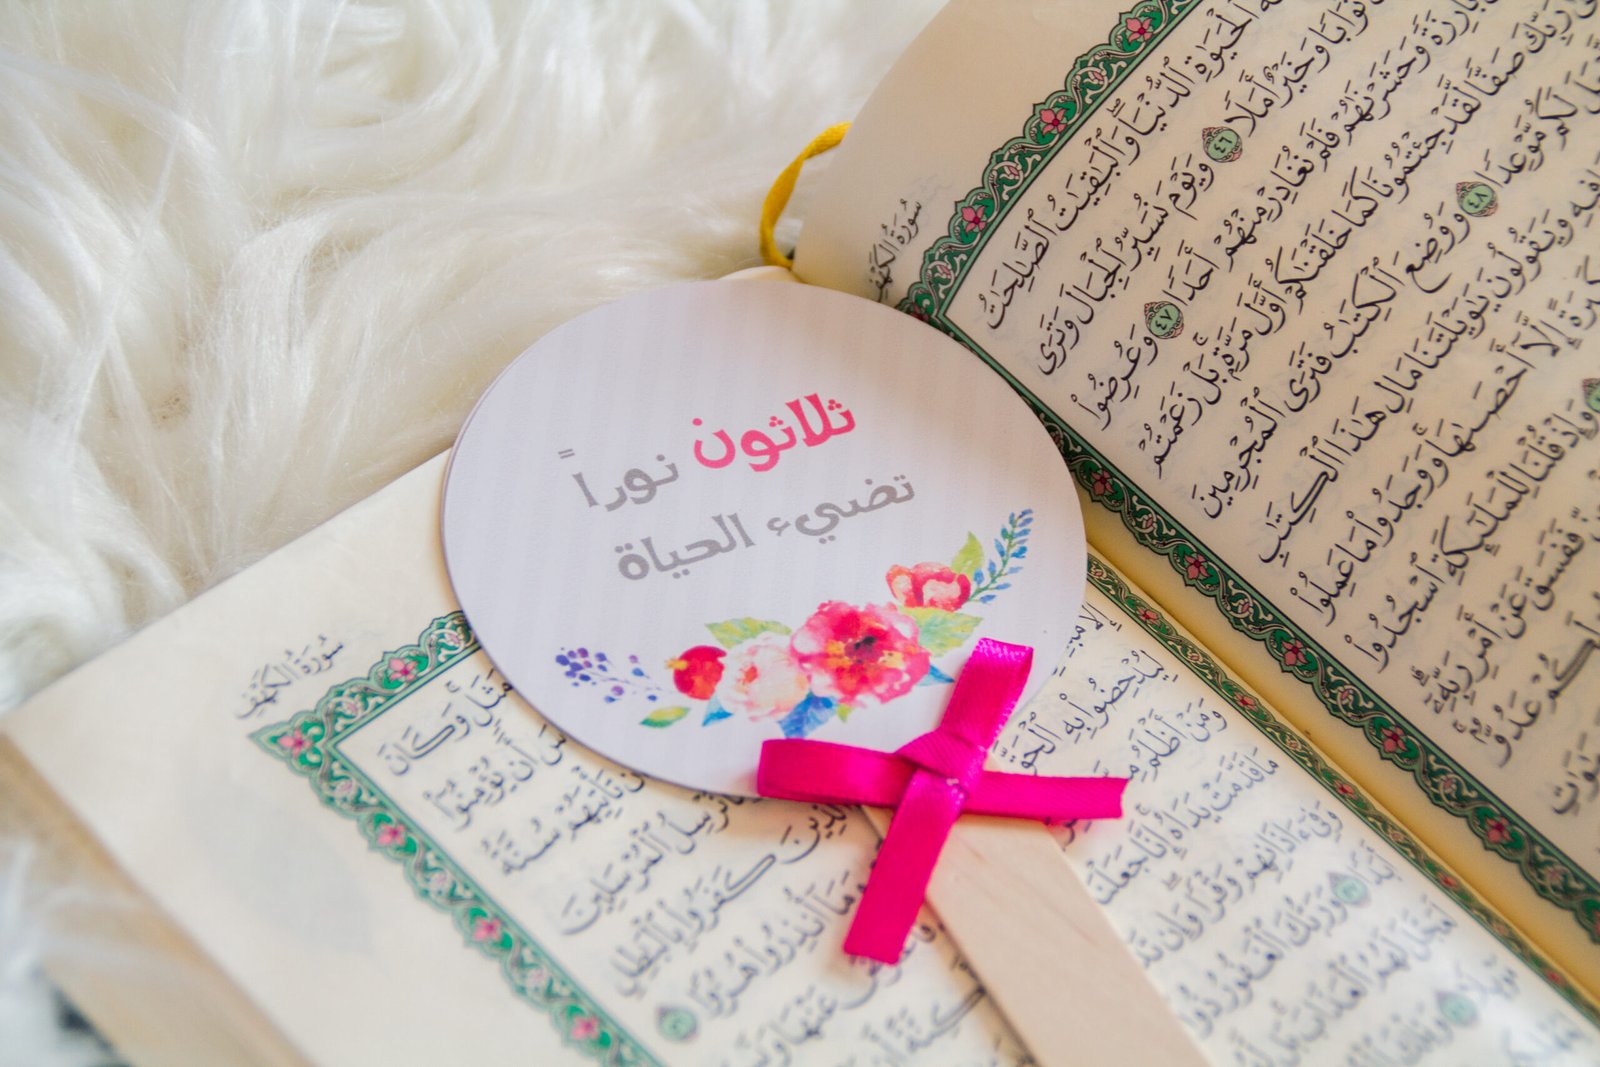 ثلاثون نوراً
تضيء الحياة
سُورَةُ الكَهْفِ
ٱلْحَيَوٰةِ ٱلدُّنْيَا وَٱلْبَٰقِيَٰتُ ٱلصَّٰلِحَٰتُ
ثَوَابًا وَخَيْرٌ أَمَلًا ٤٦ وَيَوْمَ نُسَيِّرُ ٱلْجِبَالَ وَتَرَى
بَارِزَةً وَحَشَرْنَٰهُمْ فَلَمْ نُغَادِرْ مِنْهُمْ أَحَدًا ٤٧ وَعُرِضُوا۟
رَبِّكَ صَفًّا لَّقَدْ جِئْتُمُونَا كَمَا خَلَقْنَٰكُمْ أَوَّلَ مَرَّةٍۭ بَلْ زَعَمْتُمْ
لَكُم مَّوْعِدًا ٤٨ وَوُضِعَ ٱلْكِتَٰبُ فَتَرَى ٱلْمُجْرِمِينَ
فِيهِ وَيَقُولُونَ يَٰوَيْلَتَنَا مَالِ هَٰذَا ٱلْكِتَٰبِ
كَبِيرَةً إِلَّآ أَحْصَىٰهَا وَوَجَدُوا۟ مَا عَمِلُوا۟
وَإِذْ قُلْنَا لِلْمَلَٰٓئِكَةِ ٱسْجُدُوا۟
فَفَسَقَ عَنْ أَمْرِ رَبِّهِۦٓ
لَكُمْ عَدُوٌّۢ
سُورَةُ الكَهْفِ
مَثَلٍ وَكَانَ
أَن يُؤْمِنُوٓا۟
تَأْتِيَهُمْ سُنَّةُ
نُرْسِلُ ٱلْمُرْسَلِينَ
ٱلَّذِينَ كَفَرُوا۟ بِٱلْبَٰطِلِ
لِيُدْحِضُوا۟ بِهِ ٱلْحَقَّ
وَمَآ أُنذِرُوا۟ هُزُوًا ٥٦
وَمَنْ أَظْلَمُ
عَنْهَا
مَا قَدَّمَتْ يَدَاهُ إِنَّا جَعَلْنَا
وَفِىٓ ءَاذَانِهِمْ وَقْرًا وَإِن
أَبَدًا ٥٧ وَرَبُّكَ ٱلْغَفُورُ
لَعَجَّلَ لَهُمُ ٱلْعَذَابَ بَل